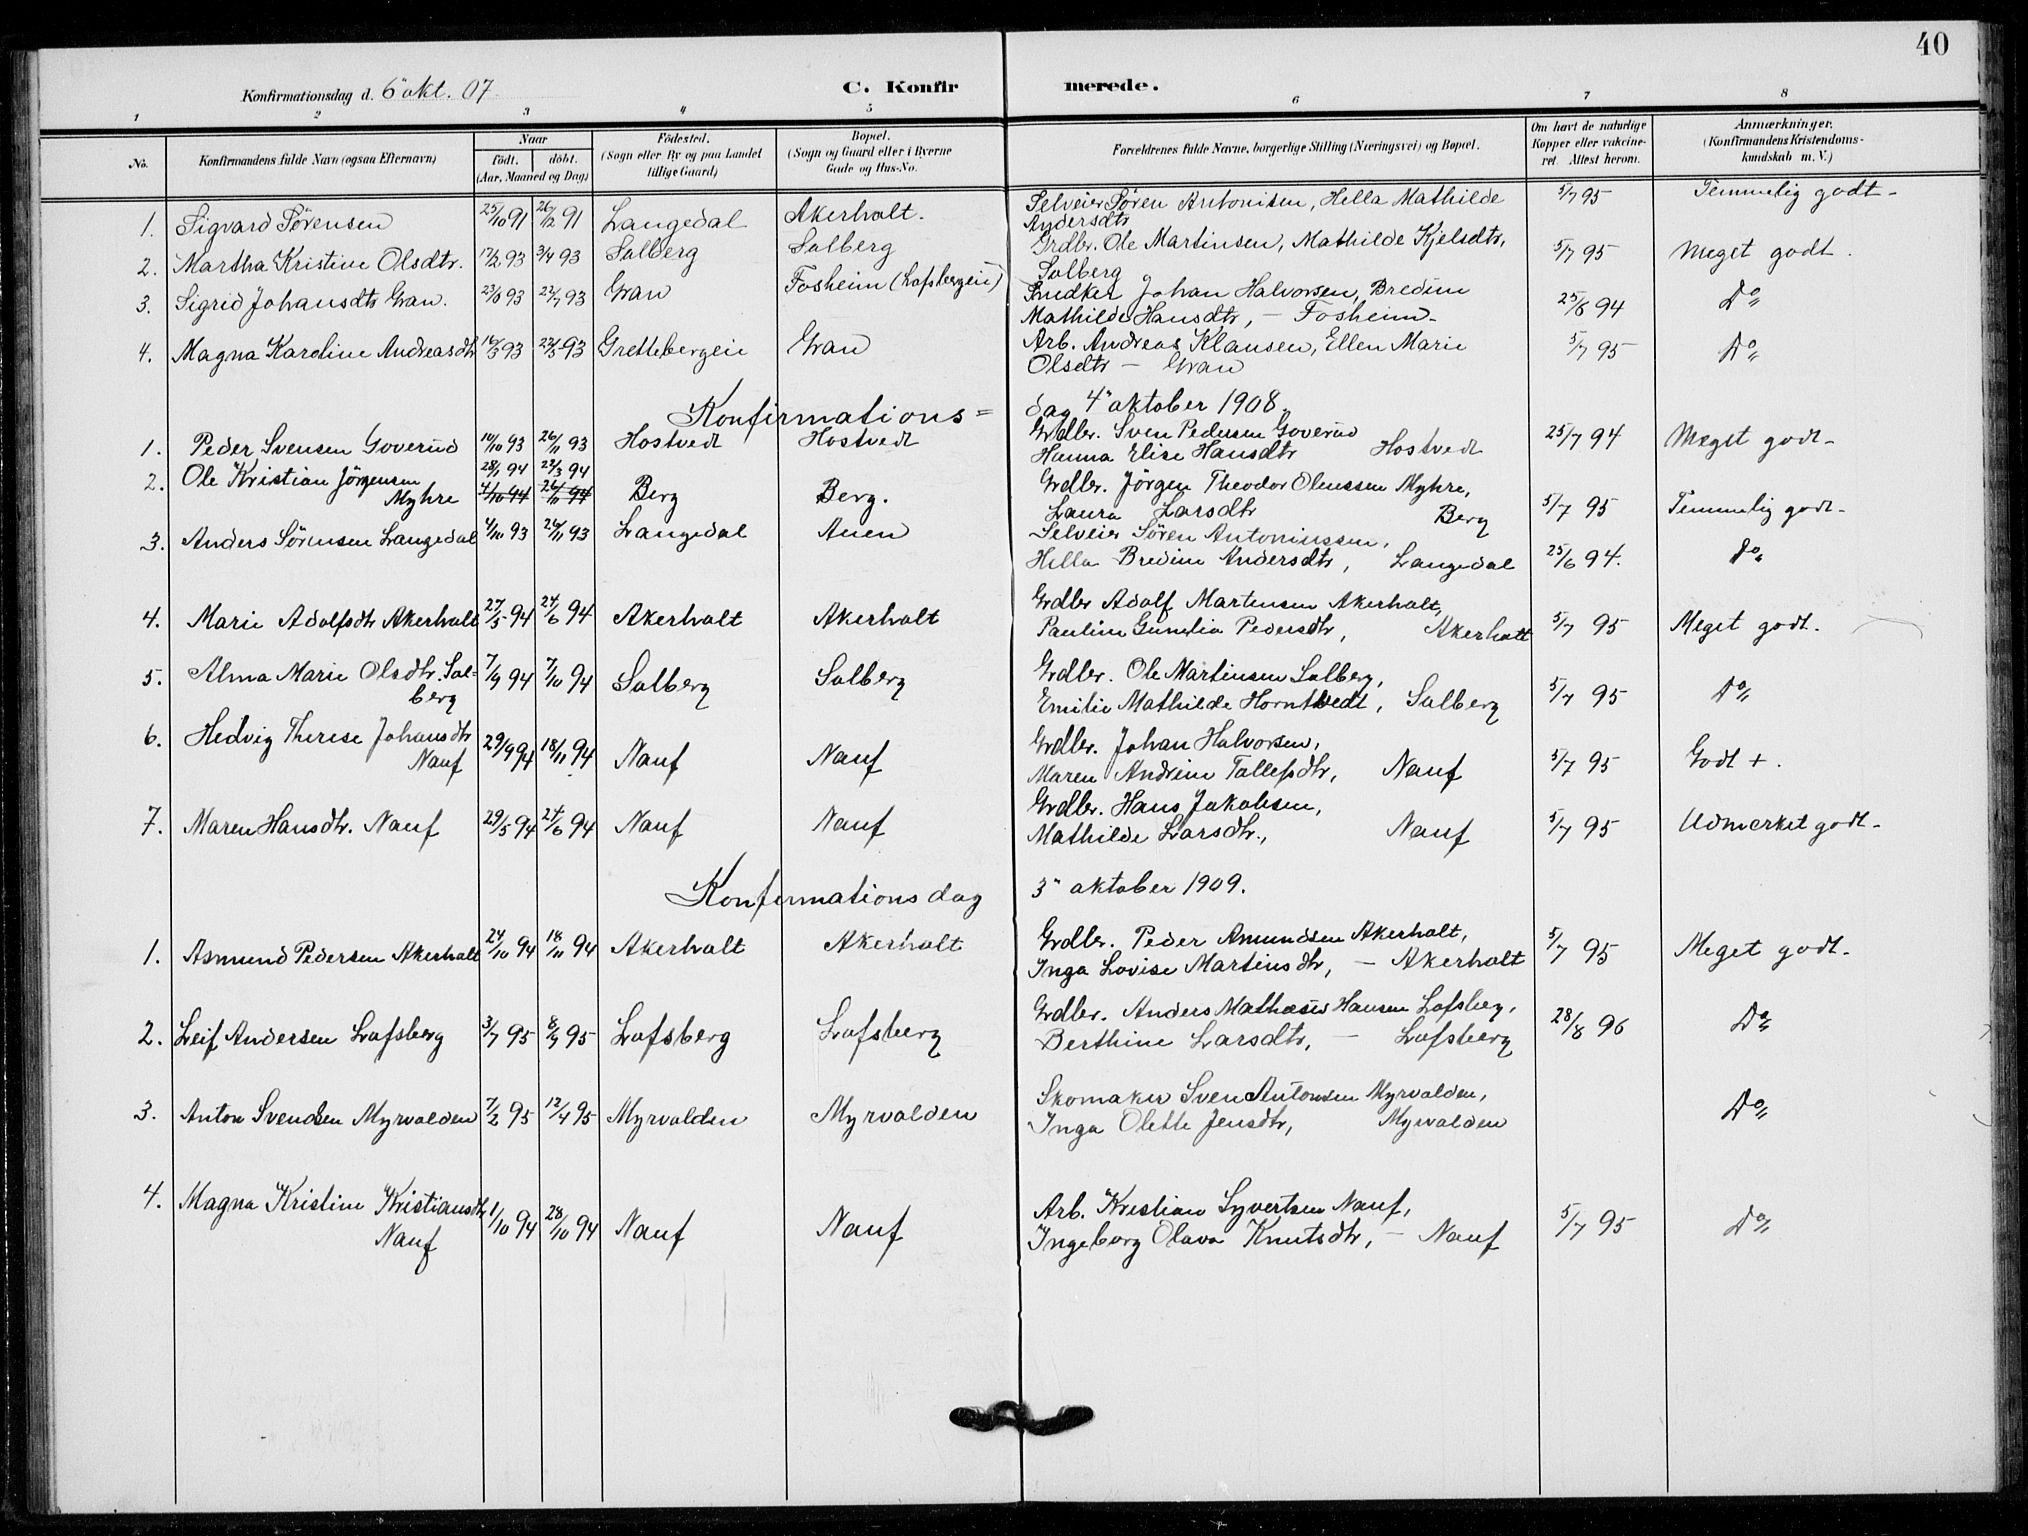 40
Konfirmationsdag d. 6 okt. 07
C. Konfir merede.
1 2 3 4 5 6 7 8
No. Konfirmandens fulde Navn (ogsaa Efternavn) Naar født. døbt. (Aar, Maaned og Dag) Fødested. (Sogn eller By og paa Landet tillige Gaard) Bopæl. (Sogn og Gaard eller i Byerne Gade og Hus-No. Forældrenes fulde Navne, borgerlige Stilling (Næringsvei) og Bopæl. Om havt de naturlige Kopper eller vakcineret Attest herom. Anmærkninger. (Konfirmandens Kristendomskundskab m. V.)
1. Sigvard Sørensen 25/10 91 26/12 91 Langedal Akerholt. Selveier Søren Antonisen, Hella Mathilde 5/7 95 Temmelig godt -
Andersdtr
2. Martha Kristine Olsdtr. 17/2 93 3/4 93 Solberg Solberg Grdbr. Ole Martinsen, Mathilde Kjelsdtr, 5/7 95 Meget godt.
Solberg
3. Sigrid Johansdtr Gran. 93 93 Gran Fosheim (Lofsbergeie) Snedker Johan Halvorsen, Bredine
Mathilde Hansdtr, - Fosheim - 25/6 94 Do
4. Magna Karoline Andreasdtr 93 93 Grettebergeie Gran Arb. Andreas Klausen, Ellen Marie 5/7 95 Do
Olsdtr - Gran
Konfirmations= dag 4 oktober 1908.
1. Peder Svensen Goverud 10/10 93 26/11 93 Hostvedt Hostvedt Grdbr. Sven Pedersen Goverud 25/7 94 Meget godt -
Hanna Elise Hansdtr Hostvedt
2. Ole Kristian Jörgensen 28/1 94 22/3 94 Grdbr. Jörgen Theodor Olaussen Myhre,
Myhre 4/10 94 26/11 94 Berg Berg. Laura Larsdtr Berg 5/7 95 Temmelig godt -
3. Anders Sörensen Langedal 4/10 93 26/11 93 Langedal Auen Selveier Sören Antonissen,
Hella Bredine Andersdtr, Langedal 25/6 94. Do
4. Marie Adolfsdtr Akerholt 27/5 94 24/6 94 Akerholt Akerholt Grdbr Adolf Martinsen Akerholt,
Pauline Gunelia Pedersdtr, Akerholt 5/7 95 Meget godt.
5. Alma Marie Olsdtr. Sol= 7/9 94 7/10 94 Solberg Solberg Grdbr. Ole Martinsen Solberg,
berg Emilie Mathilde Horntvedt, Solberg 5/7 95 Do
6. Hedvig Therese Johansdtr 29/9 94 18/11 94 Nauf Nauf Grdbr. Johan Halvorsen,
Nauf Maren Andrine Tollefsdtr, Nauf 5/7 95 Godt +.
7. Maren Hansdtr. Nauf 29/5 94 24/6 94 Nauf Nauf Grdbr. Hans Jakobsen,
Mathilde Larsdtr., Nauf 5/7 95 Udmerket godt -
Konfirmationsdag 3 oktober 1909.
1. Asmund Pedersen Akerholt 24/10 94 18/11 94 Akerholt Akerholt Grdbr. Peder Amundsen Akerholt,
Inga Lovise Martinsdtr, - Akerholt 5/7 95 Meget godt -
2. Leif Andersen Lofsberg 3/7 95 8/9 95 Lofsberg Lofsberg Grdbr. Anders Mathæus Hansen Lofsberg,
Berthine Larsdtr, - Lofsberg 28/8 96 Do
3. Anton Svendsen Myrvolden 7/2 95 12/4 95 Myrvolden Myrvolden Skomaker Sven Antonsen Myrvolden,
Inga Olette Jensdtr, Myrvolden Do
4. Magna Kristine Kristiansdtr 1/10 94 28/10 94 Nauf Nauf Arb. Kristian Syvertsen Nauf,
Nauf Ingeborg Olava Knutsdtr, - Nauf 5/7 95 Do